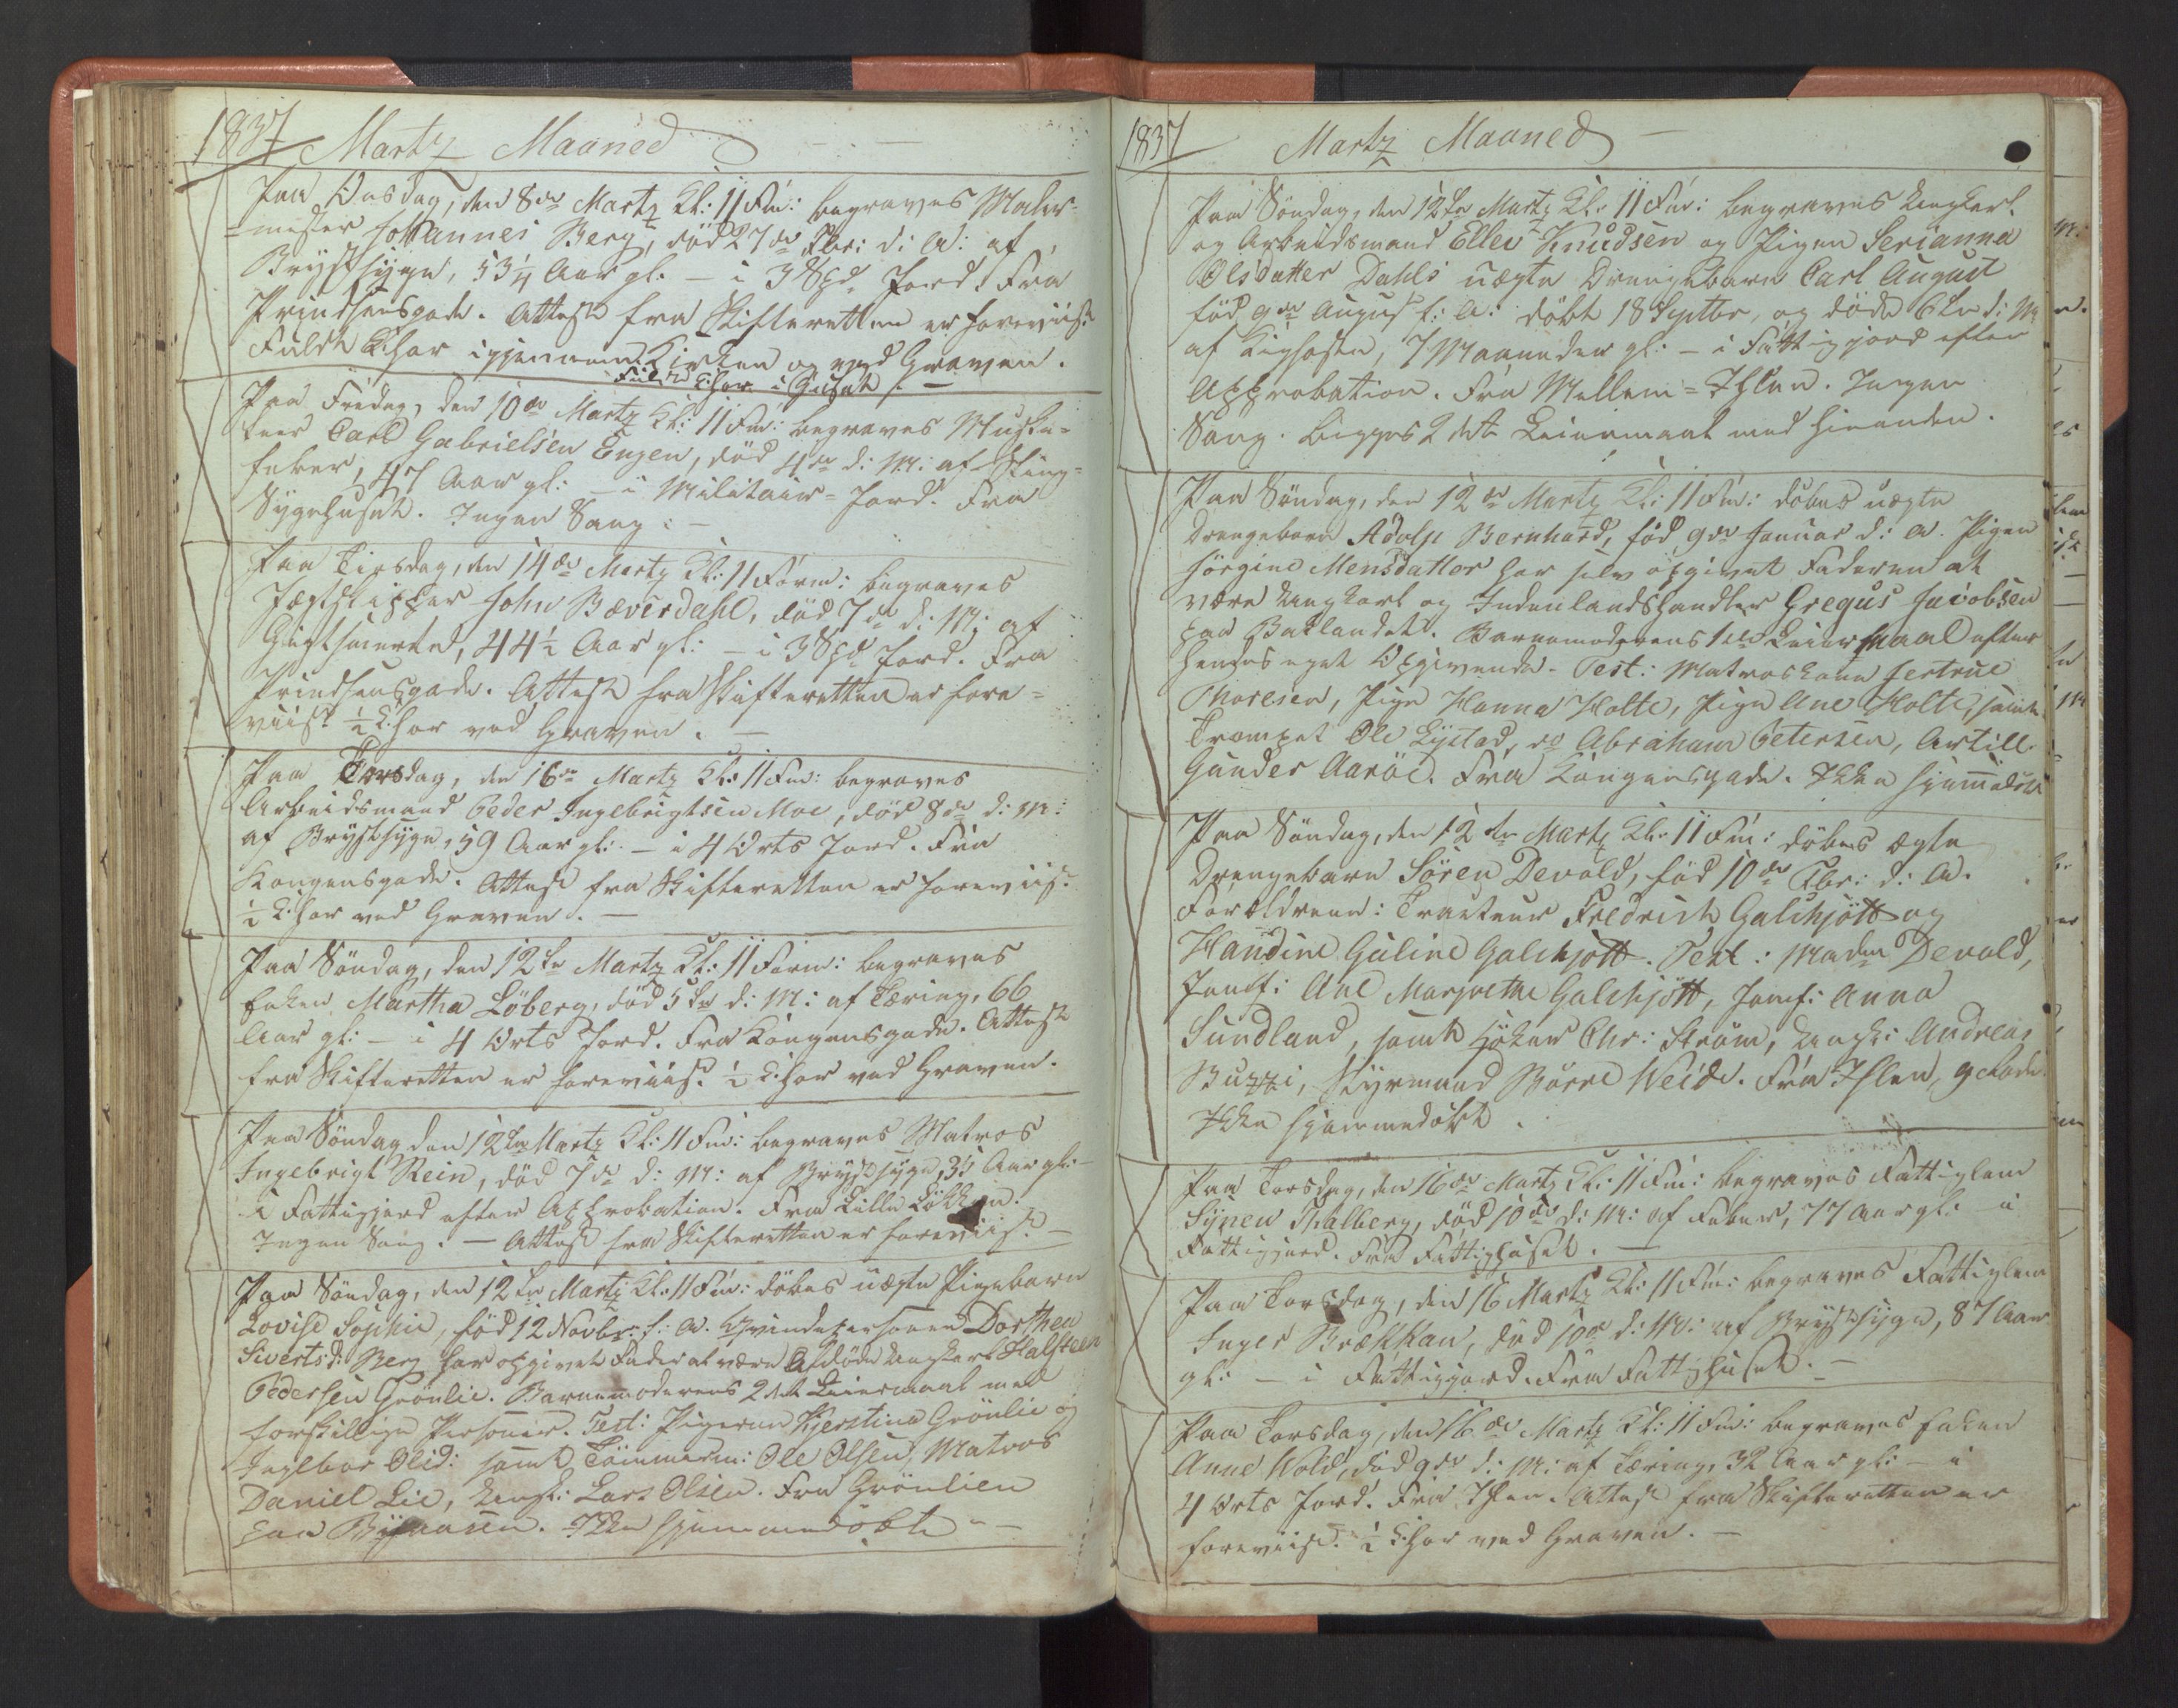 1837 Martz Maaned
Paa Onsdag, den 8de Martz Kl: 11 Fm: begraves Maler-
=mester Johannes Berg, død 27de Fbr: d: A: af
Brystsyge, 53¼ Aar gl: - i 3 Spd. Jord. Fra
Prindsensgade. Attest fra Skifteretten er foreviist.
Fuldt Chor igjennem Kirken og ved Graven.
Fuldt Chor i Huset. -
Paa Fredag, den 10de Martz Kl: 11 Fm: begraves Muske-
teer Carl Gabrielsen Engen, død 4de d: M: af
47 Aar gl: - i Militair-Jord. Fra
Sygehuset. Ingen Sang. -
Paa Tirsdag, den 14de Martz Kl: 11 Form: begraves
Jægtskipper John Bæverdahl, død 7de d: M: af
Gigtsmerte, 44½ Aar gl: - i 3 Spd Jord. Fra
Prindsensgade. Attest fra Skifteretten er fore-
viist. ½ Chor ved Graven. -
Paa Torsdag, den 16de Martz Kl: 11 Fm: begraves
Arbeidsmand Peder Ingebrigtsen Moe, død 8de d: M:
af Brystsyge, 59 Aar gl: - i 4 Orts Jord. Fra
Kongensgade. Attest fra Skifteretten er foreviist.
½ Chor ved Graven. -
Paa Søndag, den 12te Martz Kl: 11 Form: begraves
Enken Martha Löberg, død 5te d: M: af Tæring, 66
Aar gl: - i 4 Orts Jord. Fra Kongensgade. Attest
fra Skifteretten er foreviist. ½ Chor ved Graven.
Paa Søndag den 12te Martz Kl: 11 Fm: begraves Matros
Ingebrigt Rein, død 7de d: M: af Brystsyge, 35 Aar gl: -
i Fattigjord efter Approbation. Fra Lille Løkken.
Ingen Sang. - Attest fra Skifteretten er foreviist. -
Paa Søndag, den 12te Martz Kl: 11 Fm: døbes uægte Pigebarn
Lovise Sophie, född 12 Novbr: f: A. Qvindepersonen Dorthea
Sivertsd: Berg har opgivet Fader at være Afdøde Ungkarl Halsteen
Pedersen Grönlie. Barnemoderens 2det Leiermaal med
forskjellige Personer. Test: Pigerne Kjerstina Grönlie og
Ingebor Olsd: samt Tömmerm: Ole Olsen, Matros
Daniel Lie, Ungk: Lars Olsen. Fra Grönlien
paa Byaasen. Ikke hjemmedøbt. -
1837 Martz Maaned -
Paa Søndag, den 12te Martz Kl: 11 Fm: begraves Ungkarl
og Arbeidsmand Ellev Knudsen og Pigen Serianna
Olsdatter Dahls uægte Drengebarn Carl August
född 9de August f: A: döbt 18 Septbr, og døde 6te d: M:
af Kighoste, 7 Maaneder gl: - i Fattigjord efter
Approbation. Fra Mellem-Ihlen. Ingen
Sang. Begges 2det Leiermaal med hinanden.
Paa Søndag, den 12te Martz Kl: 11 Fm: döbes uægte
Drengebarn Adolp Bernhard, född 9de Januar d: A. Pigen
Jörgine Mensdatter har selv opgivet Faderen at
være Ungkarl og Indenlandshandler Gregus Jacobsen
paa Baklandet. Barnemoderens 1ste Leiermaal efter
hendes eget Opgivende. Test: Matroskone Jertrue
Thoresen, Pige Hanna Holte, Pige Ane Holte, samt
Trompet Ole Lystad, og Abraham Petersen, Artill.
Gunder Aaröe. Fra Kongensgade. Ikke hjemmedøbt
Paa Søndag, den 12te Martz Kl: 11 Fm: döbes ægte
Drengebarn Sören Devold, född 10de Fbr: d: A.
Forældrene: Tracteur Fredrich Galschjött og
Handine Guline Galchjött. Test: Madm Devold,
Jomf: Ane Margrethe Galchjött, Jomf: Anna
Sundland, samt Höker Chr: Ström, Ungk: Andreas
Buzzi, Styrmand Börre Weide. Fra Ihlen,
Ikke hjemmedøbt.
Paa Torsdag, den 16de Martz Kl: 11 Fm: begraves Fattiglem
Synev Thalberg, död 10de d: M: af Feber, 77 Aar gl: - i
Fattigjord. Fra Fattighuset. -
Paa Torsdag, den 16 Martz Kl: 11 Fm: begraves Fattiglem
Inger Brækkan, död 10de d: M: af Brystsyge, 87 Aar
gl: - i Fattigjord. Fra Fattighuset. -
Paa Torsdag, den 16de Martz Kl: 11 Fm: begraves Enken
Anne Wold, död 9de d: M: af Tæring, 32 Aar gl: - i
4 Orts Jord. Fra Ihlen. Attest fra Skifteretten er
foreviist. ½ Chor ved Graven. -